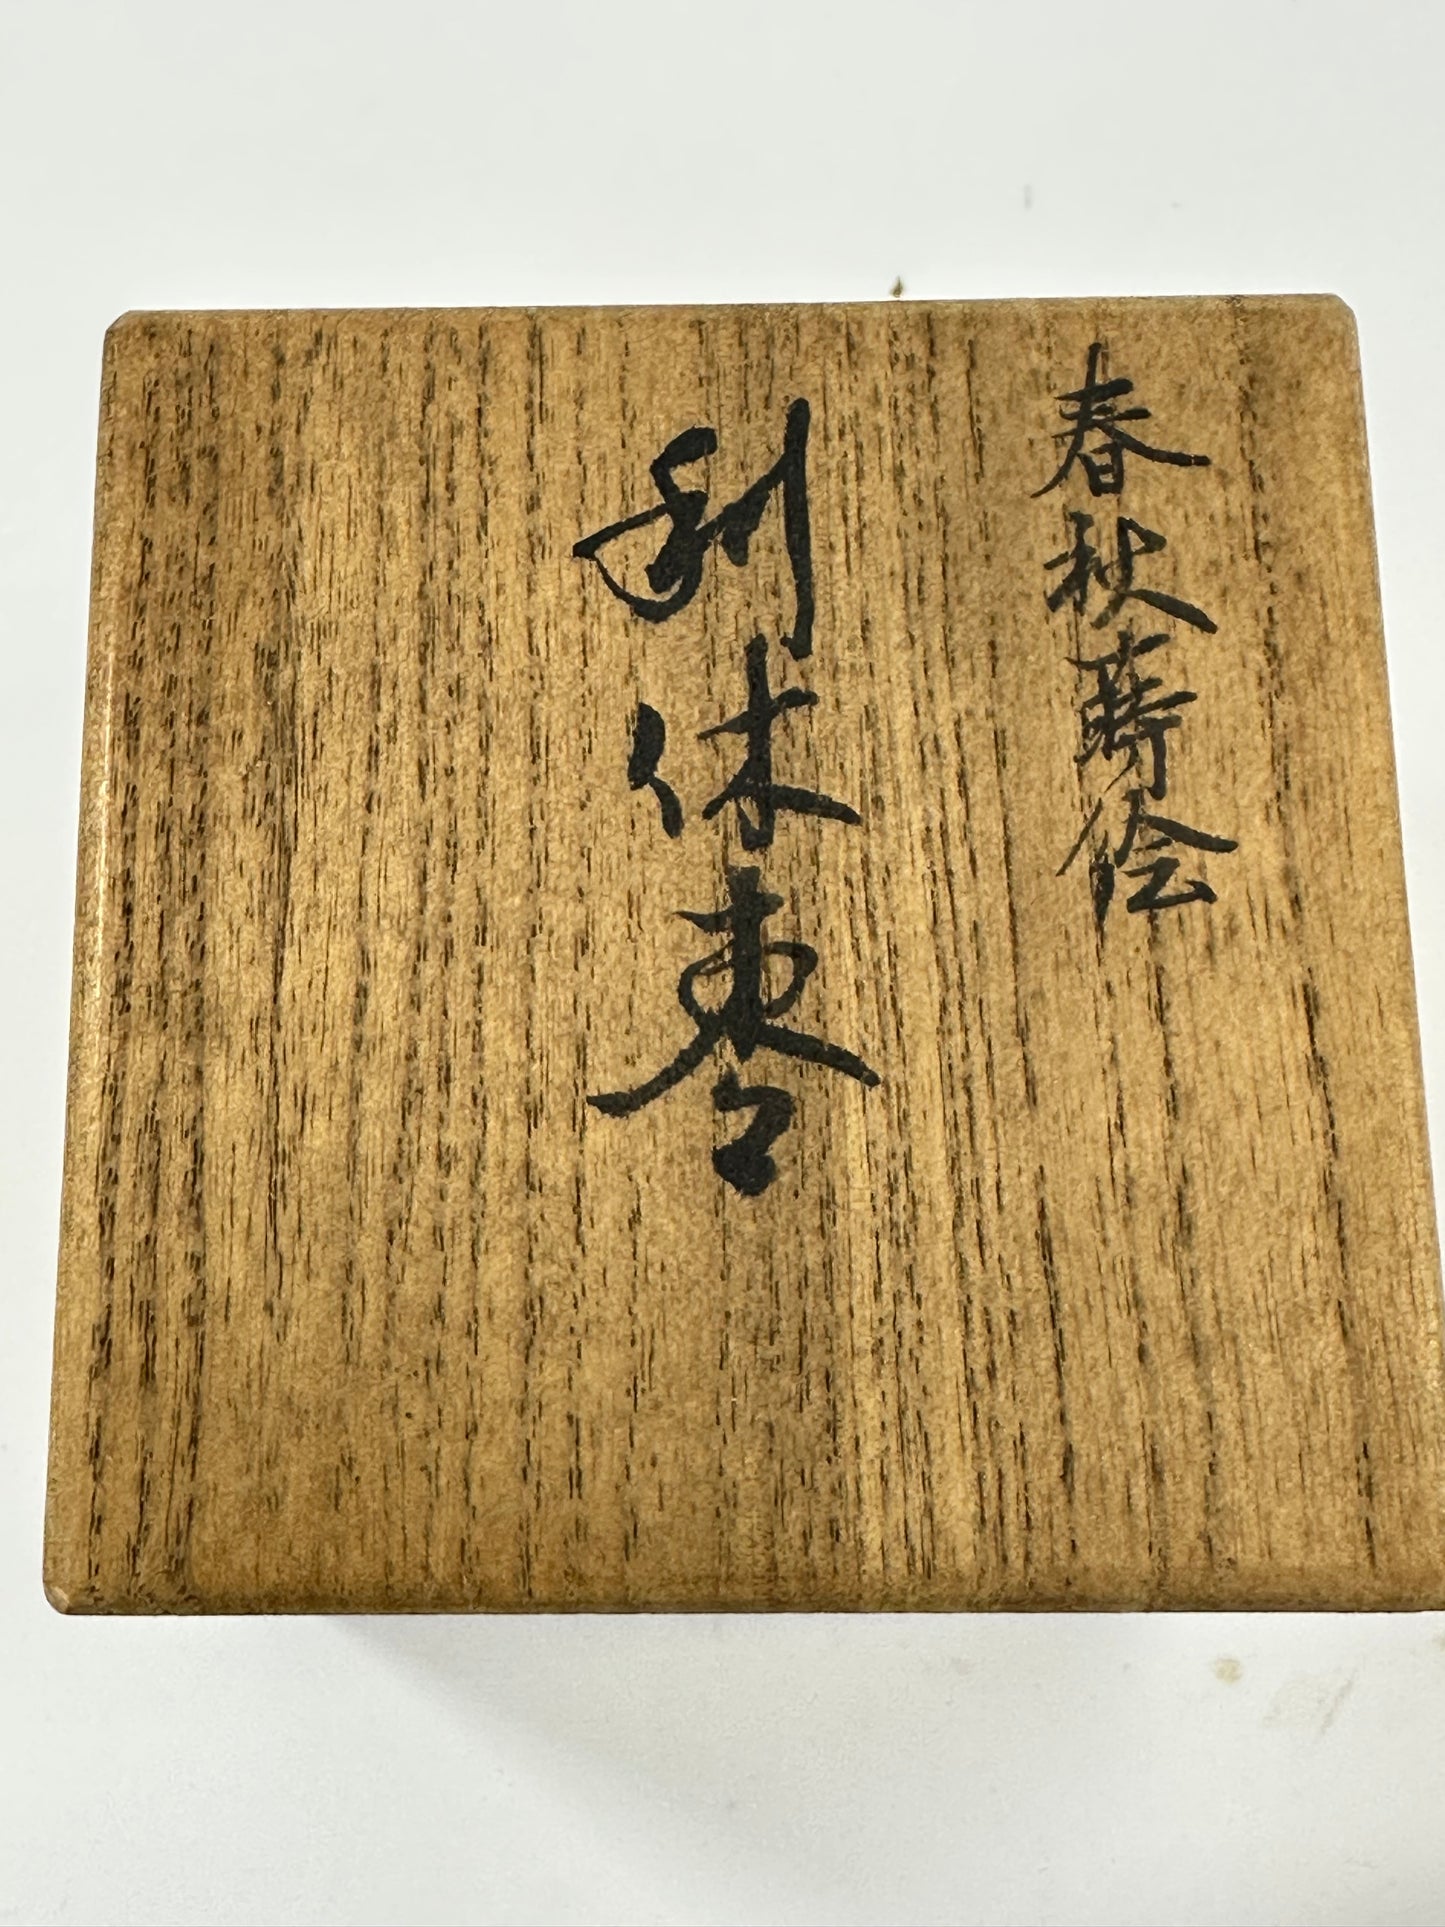 春秋蒔絵
利休棗